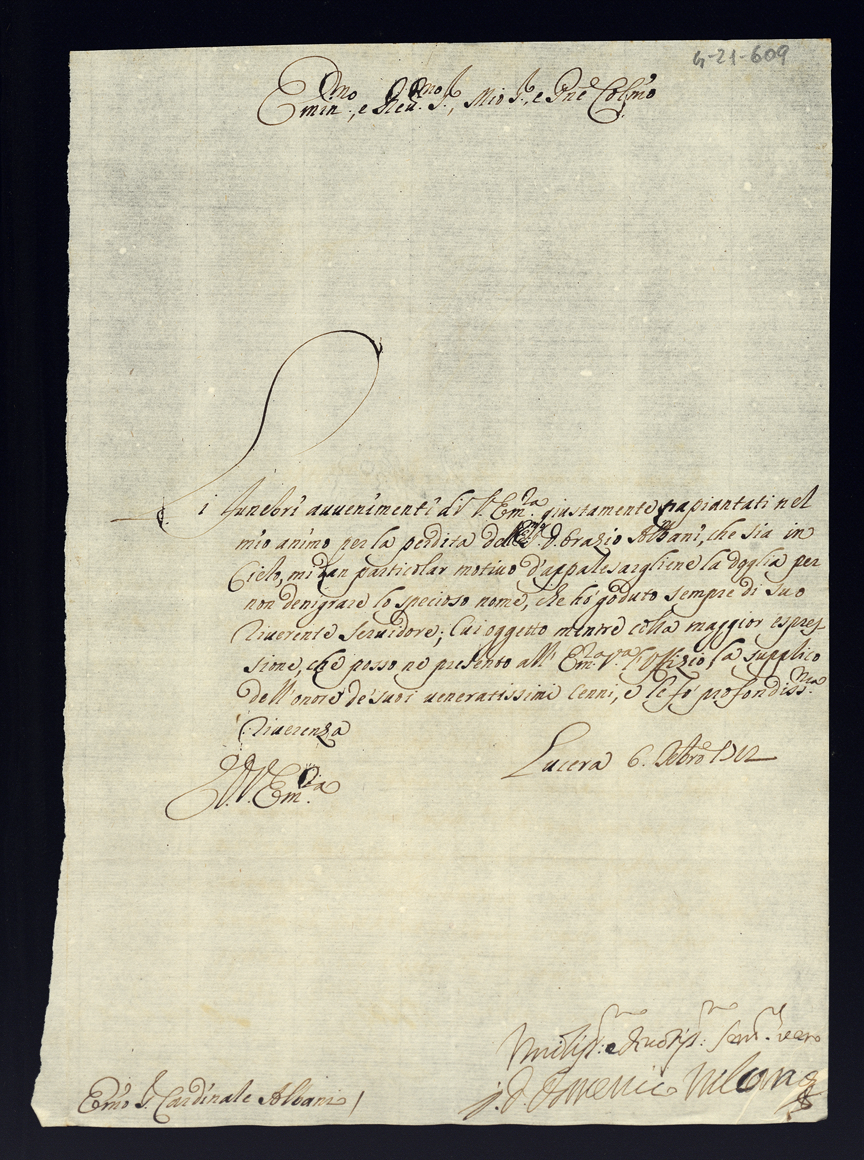 4-21-609
Emin.mo, e Rev.mo S.r, Mio S.r, e Pne Colmo
I funebri avvenimenti di V. Em.za giustamente trapiantati nel
mio animo per la perdita dell' D. Orazio Albani, che sia in
Cielo, mi dan particolar motivo d'appalesargliene la doglia per
non denigrare lo specioso nome, che hò goduto sempre di suo
riverente servidore; Cui oggetto mentre colla maggior espres
sione, che posso ne presento all' Em.za V.ra l'Offizio, la supplico
dell'onore de' suoi veneratissimi Cenni, e le fò profondiss.ma
riverenza
D. V. Em.za
Lucera 6. Xbre 1712
Umiliss.o e devotiss.o serv.re vero
D. Domenico
Emo S.r Cardinale Albani